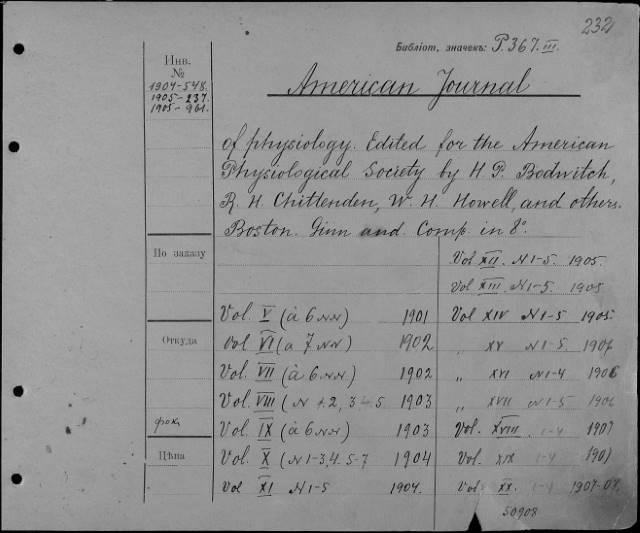 232
Библіот. значекъ: P.367.III.
Инв.
№
1904-548.
1905-237.
1905-961.
American Journal
of physiology. Edited for the American
Physiological Society by H. P. Bodwitch,
R. H. Chittenden, W. H. Howell, and others.
Boston. Ginn and Comp. in 8°.
По заказу
Откуда
фок.
Цѣна
Vol. V (à 6 NN) 1901
Vol VI (a 7 NN) 1902
Vol. VII (à 6 NN) 1902
Vol. VIII (N 1. 2, 3 4-5 1903
Vol. IX (à 6 NN) 1903
Vol. X (N 1-3,4. 5-7 1904
Vol XI N 1-5 1904.
Vol XII. N 1-5. 1905.
Vol XIII. N 1-5. 1905
Vol XIV N 1-5 1905
„ XV N 1-5.
„ XVI N 1-4 1906
„ XVII N 1-5
Vol. XVIII 1-4 1907
Vol. XIX 1-4
Vol. XX. 1-4
50908